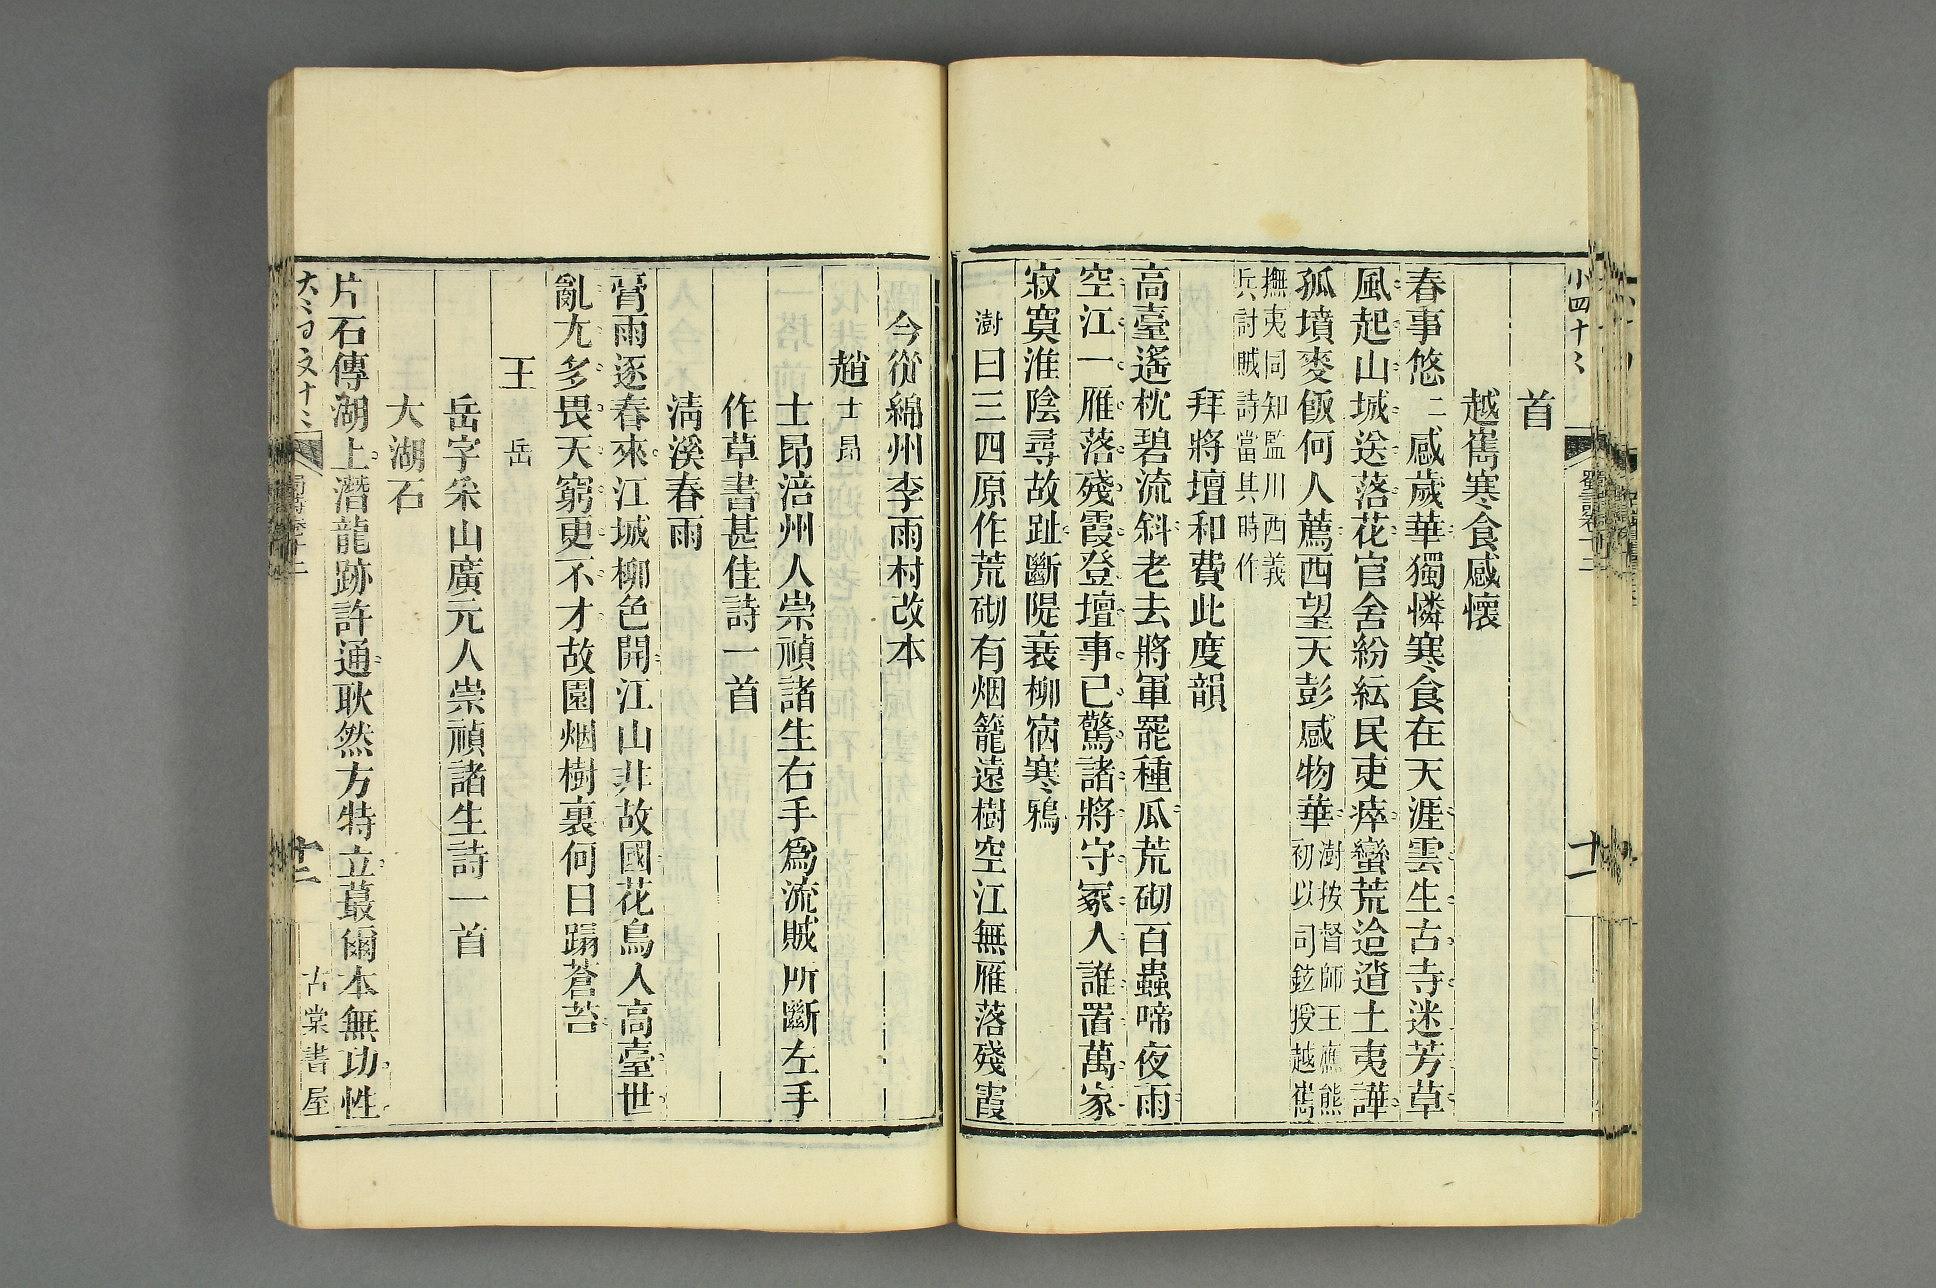 首
越巂寒食感懷
春事悠悠感歲華獨憐寒食在天涯雲生古寺迷芳草
風起山城送落花官舍紛紜民吏瘁蠻荒迨逍土夷譁
孤墳麥飯何人薦西望天彭感物華澍按督師王應熊
初以司鉉授越巂
撫夷同知監川西義
兵討賊詩當其時作
拜將壇和費此度韻
高臺遙枕碧流斜老去將軍罷種瓜荒砌百蟲啼夜雨
空江一雁落殘霞登壇事已驚諸將守冢人誰置萬家
寂寞淮陰尋故趾斷隄衰柳宿寒鴉
澍曰三四原作荒砌有烟籠遠樹空江無雁落殘霞
十一
今從綿州李雨村改本
趙士昂
士昂涪州人崇禎諸生右手為流賊所斷左手
作草書甚佳詩一首
淸溪春雨
膏雨逐春來江城柳色開江山非故國花鳥人高臺世
亂尢多畏天窮更不才故園烟樹裏何日蹋蒼苔
王岳
岳字釆山廣元人崇禎諸生詩一首
大湖石
片石傳湖上潛龍跡許通耿然方特立蕞爾本無功性
十二
古棠書屋